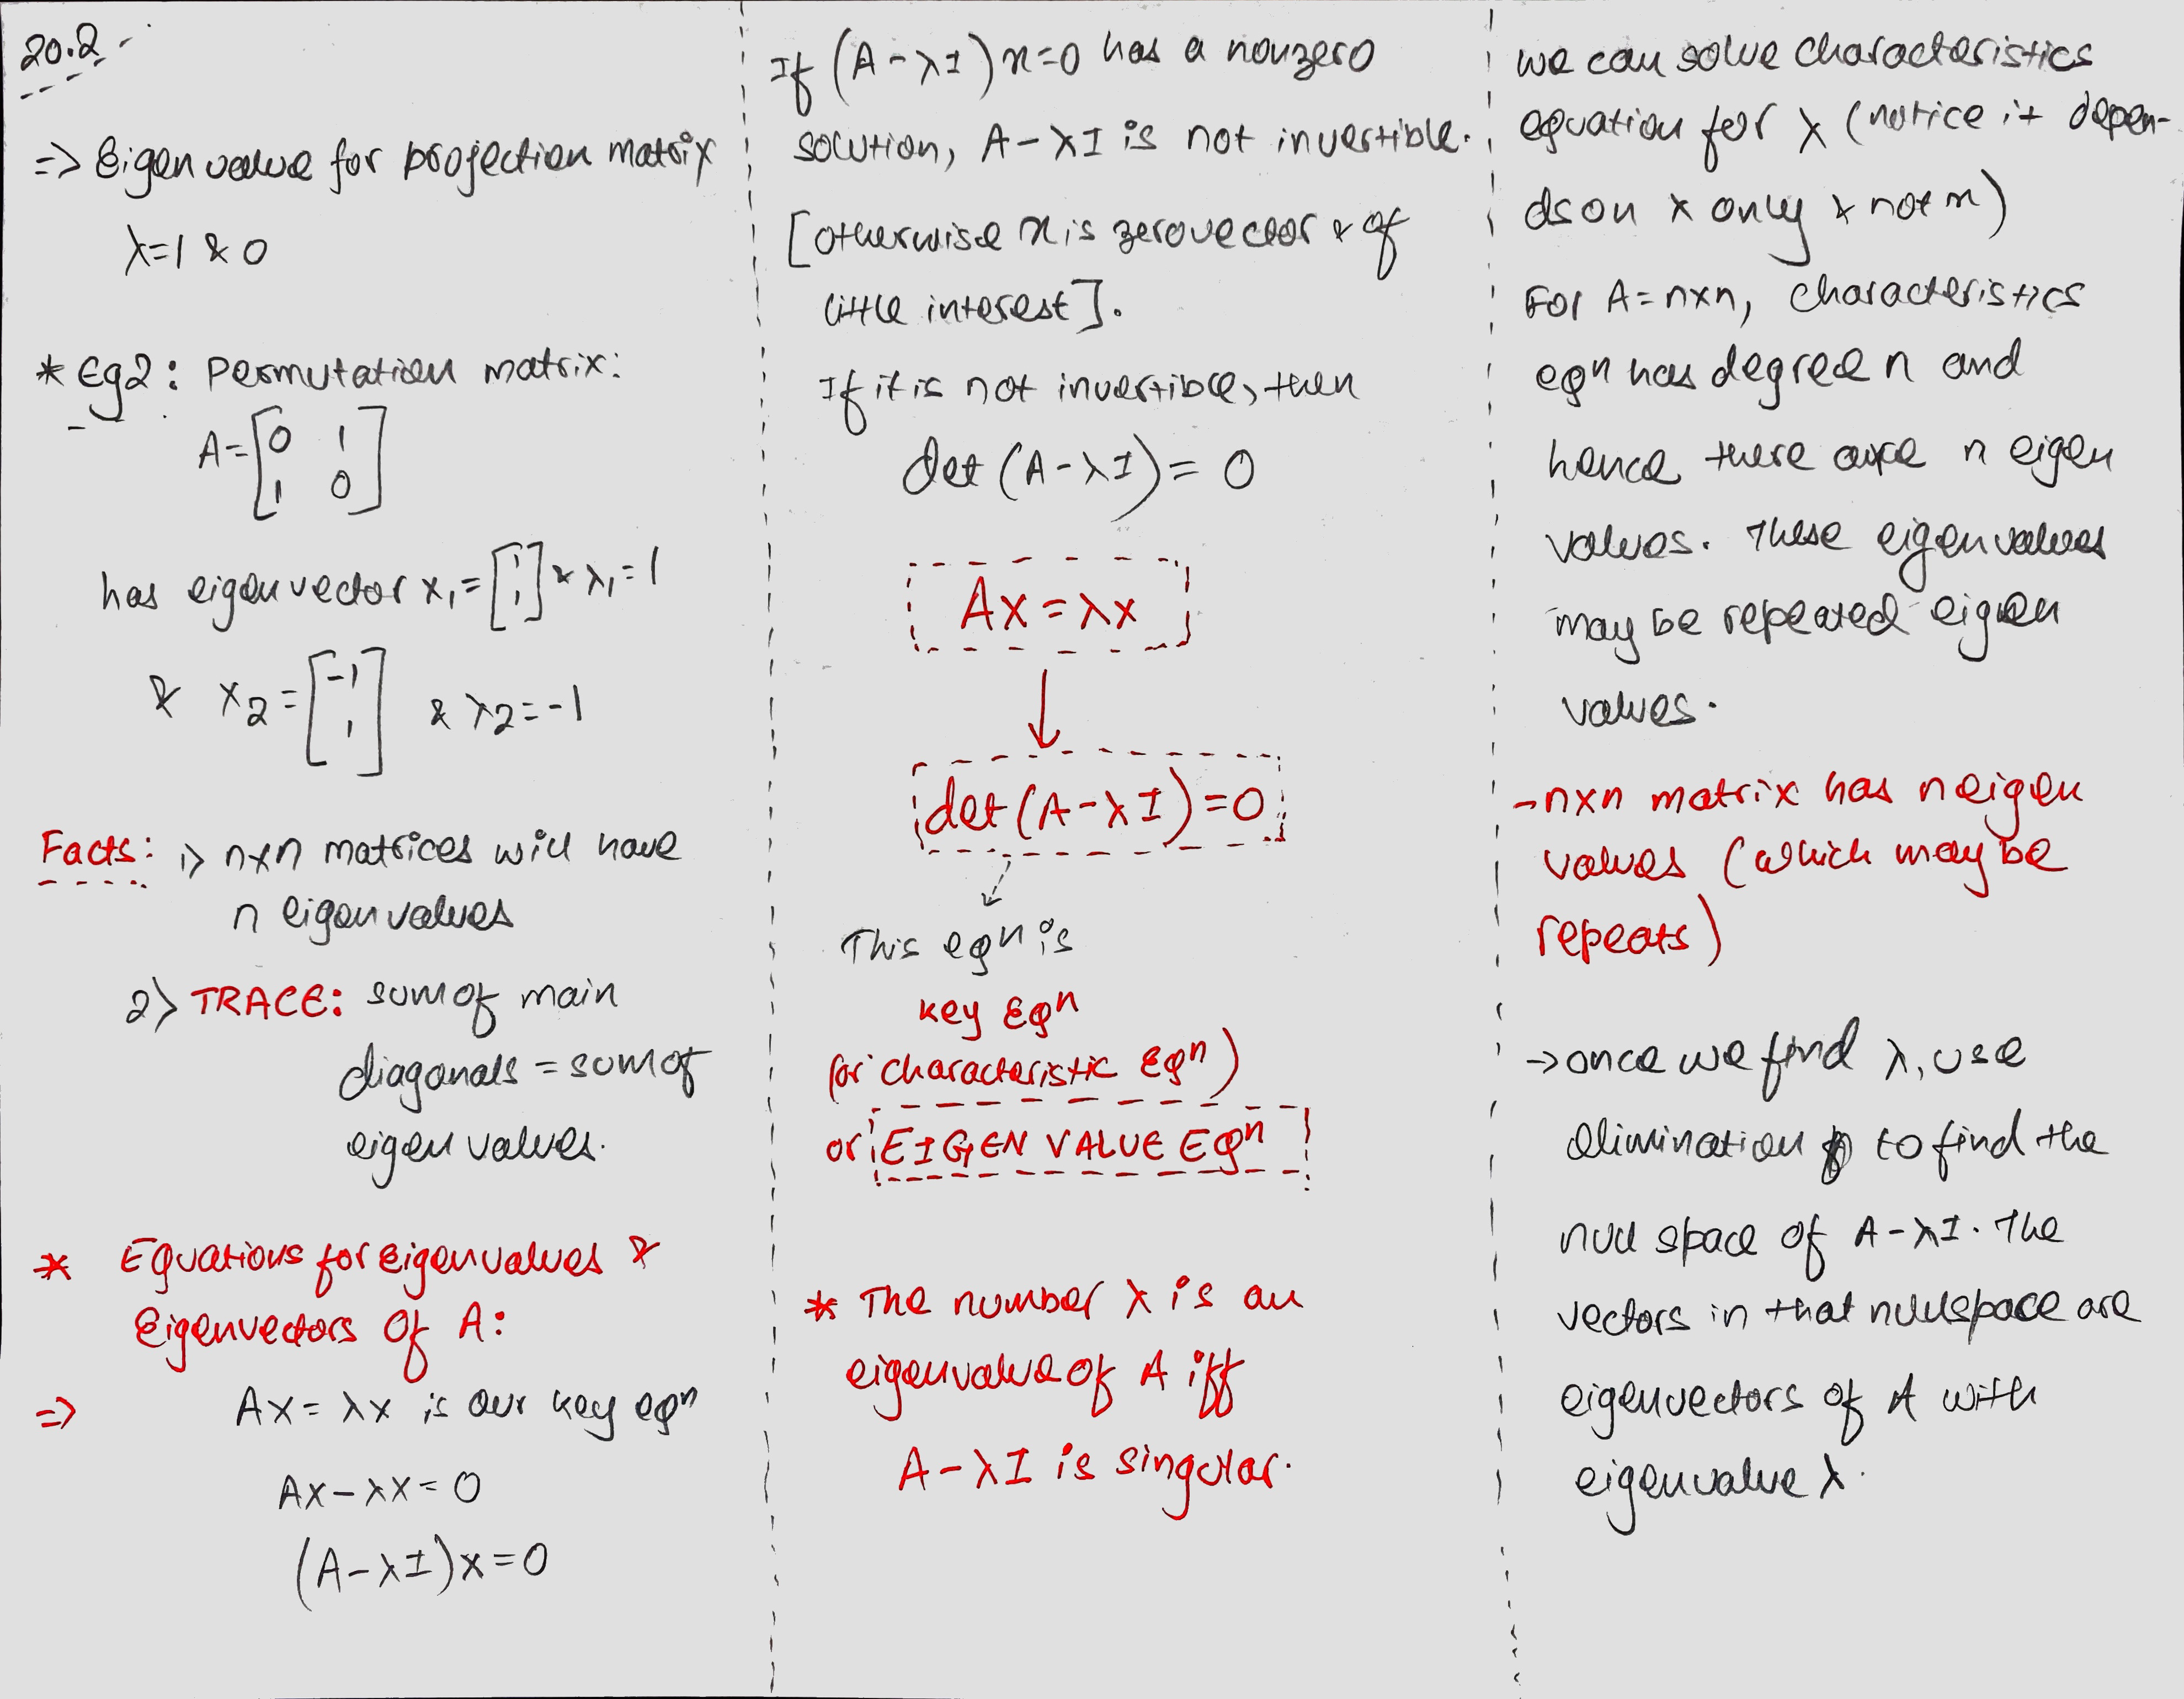 20.2 -
=> Eigen value for projection matrix
λ=1 & 0
* Eg2: Permutation matrix:
A=[0 1
1 0]
has eigenvector x₁=[1
1] & λ₁=1
& x₂=[-1
1] & λ2=-1
Facts: 1> nxn matrices will have
n eigenvalues
2> TRACE: sum of main
diagonals = sum of
eigen values.
* Equations for eigenvalues &
Eigenvectors of A:
=> Ax = λx is our key eqⁿ
Ax-λx=0
(A-λI)x=0
If (A-λI)x=0 has a nonzero
solution, A-λI is not invertible.
[otherwise x is zerovector & of
little interest].
If it is not invertible, then
det(A-λI)=0
Ax=λx
↓
det(A-λI)=0
This eqⁿ is
key Eqⁿ
(or characteristic Eqⁿ)
or EIGEN VALUE Eqⁿ
* The number λ is an
eigenvalue of A iff
A-λI is singular.
we can solve characteristics
equation for λ (notice it depen-
ds on λ only & not x)
For A=nxn, characteristics
eqⁿ has degree n and
hence there are n eigen
values. These eigenvalues
may be repeated eigen
values.
-nxn matrix has n eigen
values (which may be
repeats)
→once we find λ, use
elimination to find the
null space of A-λI. The
vectors in that nullspace are
eigenvectors of A with
eigenvalue λ.